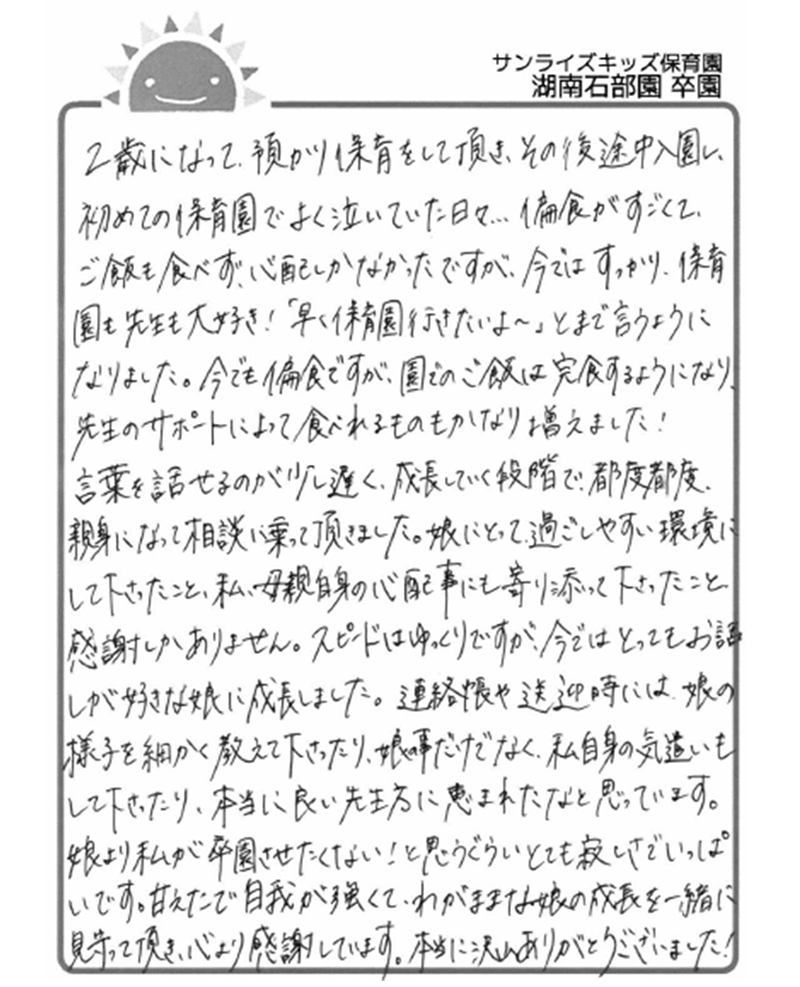 サンライズキッズ保育園
湖南石部園 卒園
2歳になって、預かり保育をして頂き、その後途中入園し、
初めての保育園でよく泣いていた日々… 偏食がすごくて、
ご飯も食べず、心配しかなかったですが、今ではすっかり、保育
園も先生も大好き!「早く保育園行きたいよ〜」とまで言うように
なりました。今でも偏食ですが、園でのご飯は完食するようになり、
先生のサポートによって食べれるものもかなり増えました!
言葉を話せるのが少し遅く、成長していく段階で、都度都度、
親身になって相談に乗って頂きました。娘にとって過ごしやすい環境に
して下さったこと、私、母親自身の心配事にも寄り添って下さったこと、
感謝しかありません。スピードはゆっくりですが、今ではとってもお話
しが好きな娘に成長しました。連絡帳や送迎時には、娘の
様子を細かく教えて下さったり、娘の事だけでなく、私自身の気遣いも
して下さったり、本当に良い先生方に恵まれたなと思っています。
娘より私が卒園させたくない!と思うぐらいとても寂しさでいっぱ
いです。甘えたで自我が強くて、わがままな娘の成長を一緒に
見守って頂き、心より感謝しています。本当に沢山ありがとうございました!